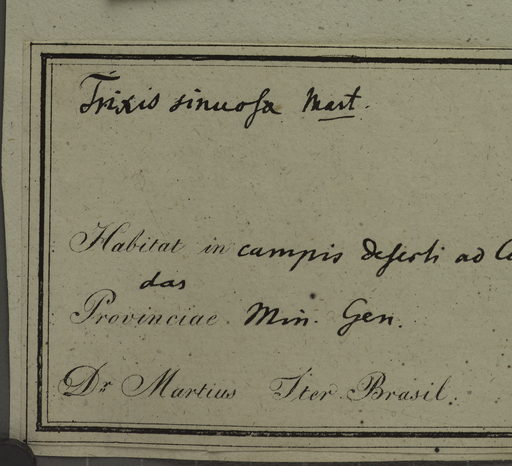 Trixis sinuosa Mart.
Habitat in campis deserti ad
das
Provinciae Min. Gen.
Dr Martius Iter Brasil.